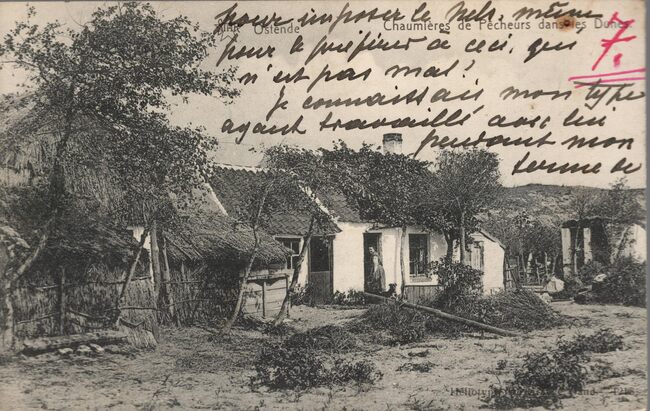 pour imposer le Nels, même
Ostende Chaumières de Pêcheurs dans les Dunes
7.
pour le préférer à ceci, qui
n'est pas mal!
Je connaissais mon type
ayant travaillé avec lui
pendant mon
terme de